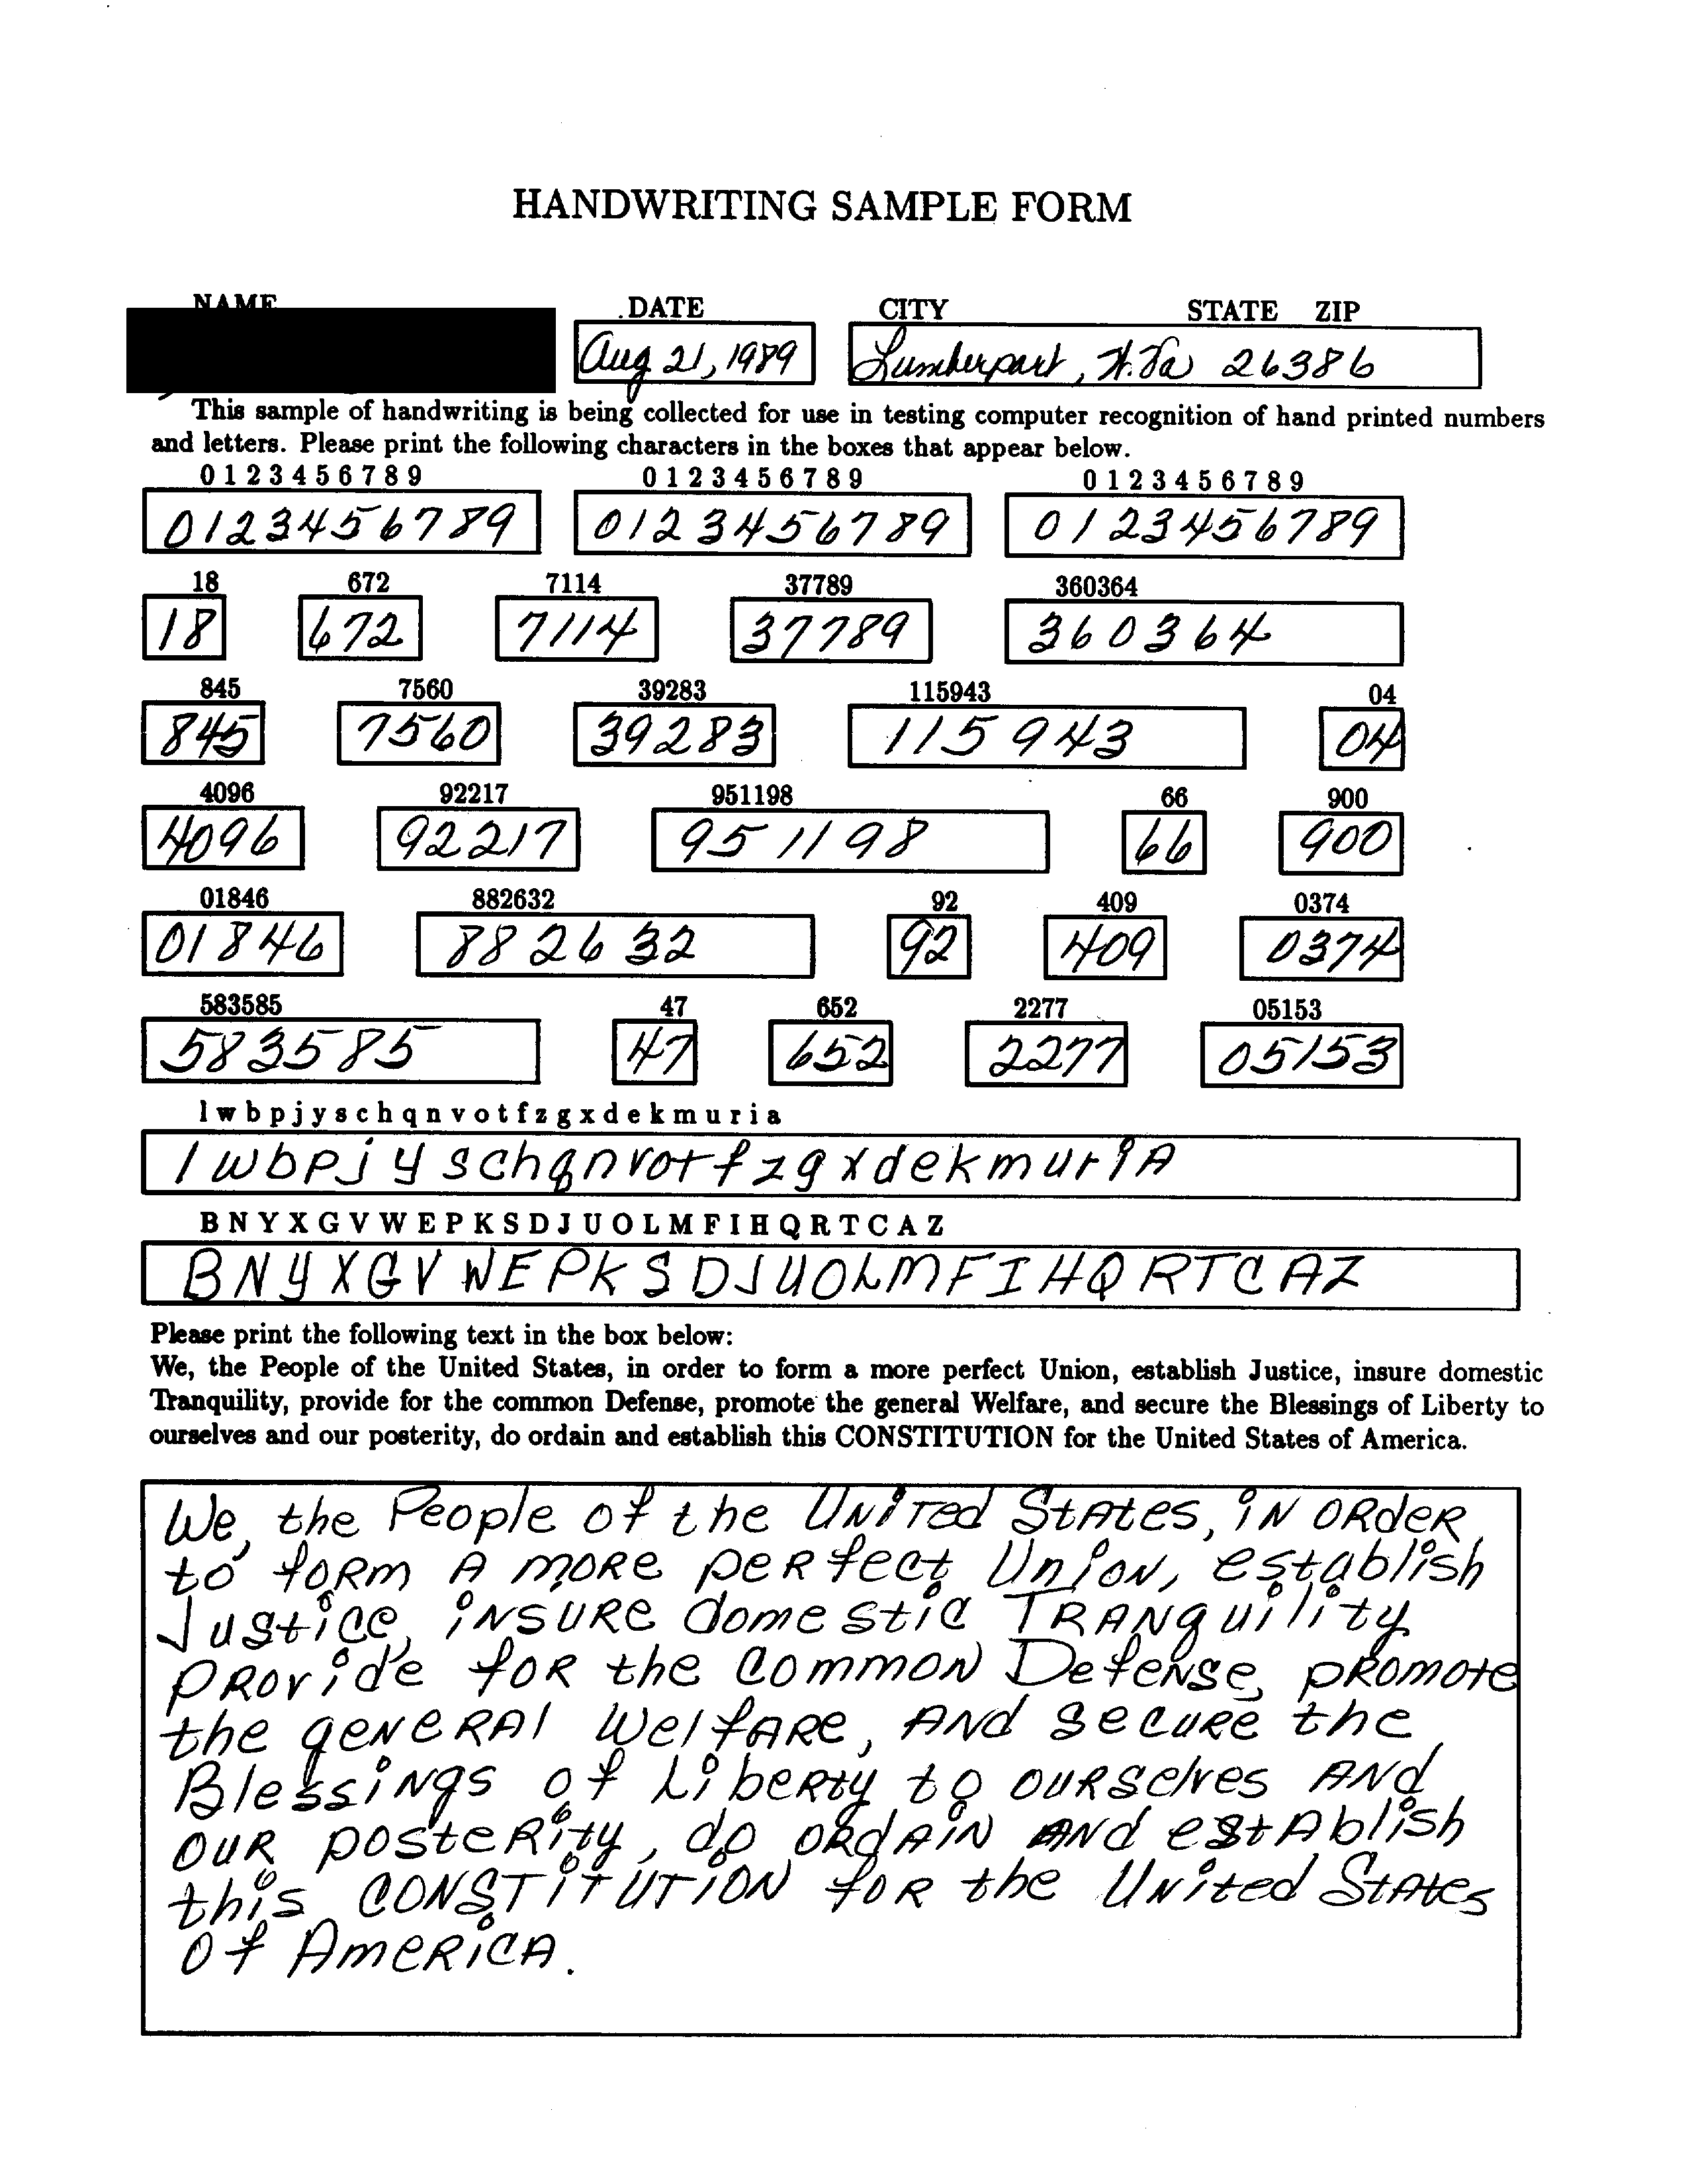 HANDWRITING SAMPLE FORM
NAME DATE CITY STATE ZIP
Aug 21, 1989 Lumberport, W.Va 26386
This sample of handwriting is being collected for use in testing computer recognition of hand printed numbers
and letters. Please print the following characters in the boxes that appear below.
0 1 2 3 4 5 6 7 8 9 0 1 2 3 4 5 6 7 8 9 0 1 2 3 4 5 6 7 8 9
0123456789 0123456789 0123456789
18 672 7114 37789 360364
18 672 7114 37789 360364
845 7560 39283 115943 04
845 7560 39283 115943 04
4096 92217 951198 66 900
4096 92217 951198 66 900
01846 882632 92 409 0374
01846 882632 92 409 0374
583585 47 652 2277 05153
583585 47 652 2277 05153
l w b p j y s c h q n v o t f z g x d e k m u r i a
l w b p j y s c h q n v o t f z g x d e k m u r i A
B N Y X G V W E P K S D J U O L M F I H Q R T C A Z
B N Y X G V W E P K S D J U O L M F I H Q R T C A Z
Please print the following text in the box below:
We, the People of the United States, in order to form a more perfect Union, establish Justice, insure domestic
Tranquility, provide for the common Defense, promote the general Welfare, and secure the Blessings of Liberty to
ourselves and our posterity, do ordain and establish this CONSTITUTION for the United States of America.
We, the People of the UNiTed StAtes, iN ORdeR
to foRm A moRe peRfect UnioN, establish
Justice, iNSURe domestic TRANquility
PROvide for the common Defense, pRomote
the geNeRAl WelfARe, ANd secuRe the
BlessiNgs of LibeRty to ouRselves ANd
ouR posteRity, do oRdAiN ANd estAblish
this CONSTiTUTiON foR the UNited StAtes
of AmeRiCA.